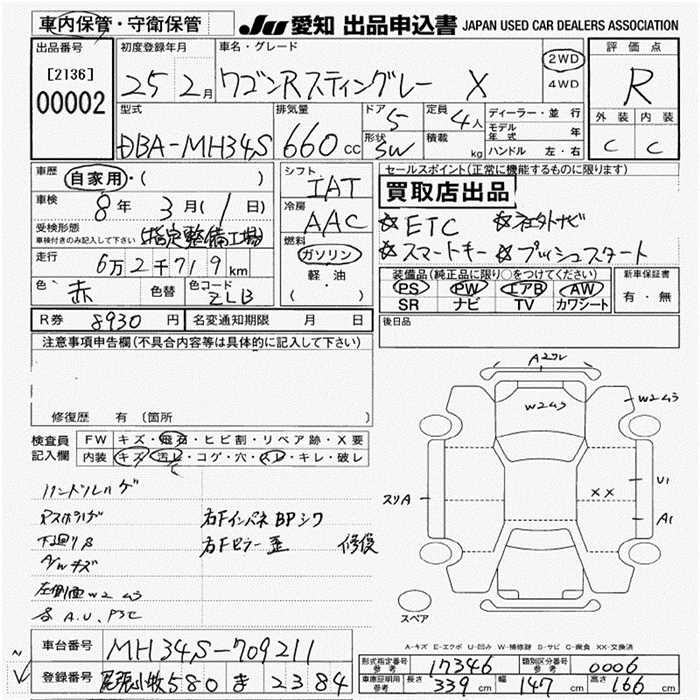 車内保管・守衛保管 JU 愛知 出品申込書 JAPAN USED CAR DEALERS ASSOCIATION
出品番号 初度登録年月 車名・グレード 評価点
[2136] 25 2月 ワゴンRスティングレー X 2WD R
00002 4WD
型式 排気量 ドア 5 定員 4人 ディーラー・並行 外装 内装
DBA-MH34S 660cc 形状 SW 積載 kg モデル年式 年 C C
ハンドル 左・右
車歴 自家用・( ) シフト IAT セールスポイント(正常に機能するものに限ります)
車検 8年 3月(1日) 冷房 AAC 買取店出品
受検形態 車検付きのみ記入して下さい (指定整備工場) 燃料 ガソリン 軽油 ( )
☆ETC ☆社外ナビ
☆スマートキー ☆プッシュスタート
走行 6万2千719km
色 赤 色替 色コード ZLB
装備品(純正品に限り○をつけてください) 新車保証書
PS PW エアB AW 有・無
SR ナビ TV カワシート
R券 8930円 名変通知期限 月 日 後日品
注意事項申告欄(不具合内容等は具体的に記入して下さい)
修復歴 有 (箇所 )
検査員記入欄 FW キズ・飛石・ヒビ割・リペア跡・X要
内装 キズ・汚レ・コゲ・穴・スレ・キレ・破レ
ハンドルハゲ
下廻りS
A/Wキズ
左側面W2ムラ
各A.U.
右FインパネBPシワ
右Fピラー歪 修復
W2ムラ
W2ムラ
スリA
XX
U1
A1
スペア
A-キズ E-エクボ U-凹み W-補修跡 S-サビ C-腐食 XX-交換済
車台番号 MH34S-709211
登録番号 尾張小牧580 き 2384
形式指定番号 参考 17346 類別区分番号 参考 0006
車庫証明用 参考 長さ 339cm 幅 147cm 高さ 166cm